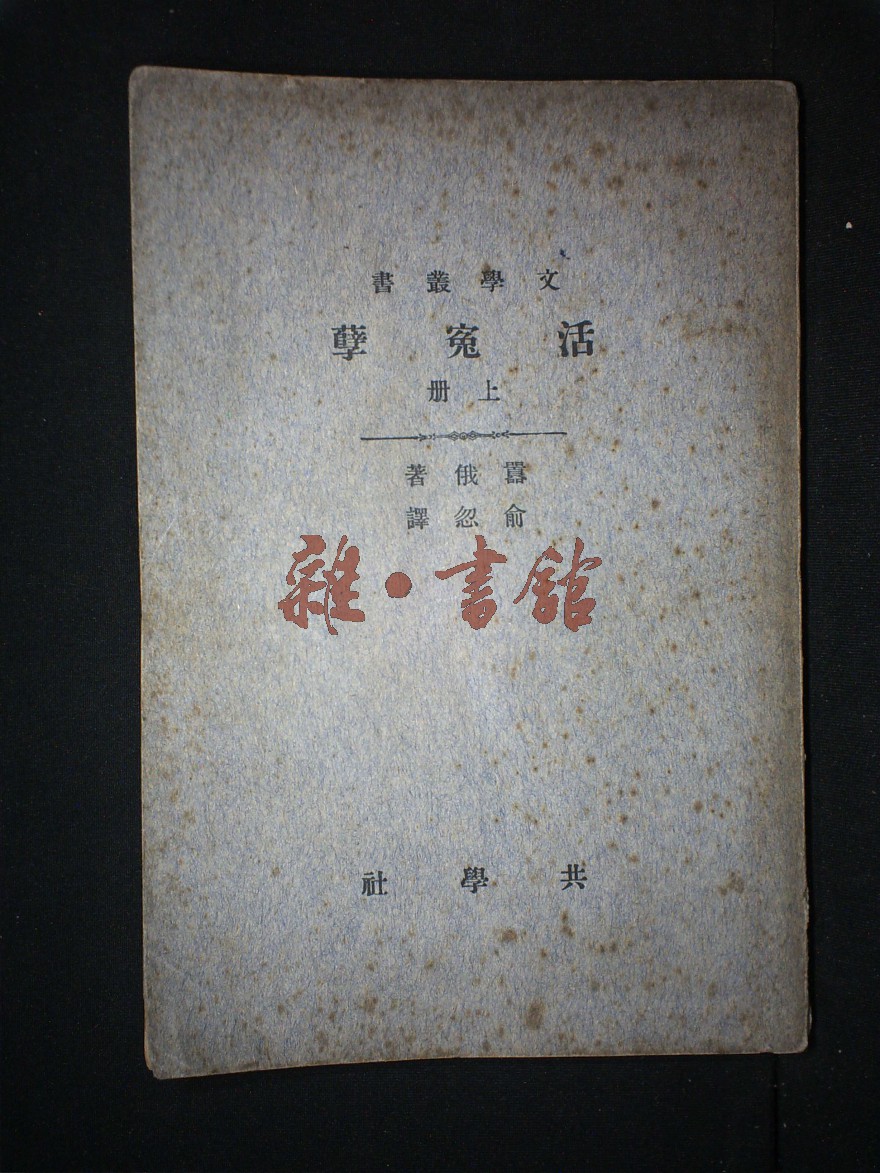 文學叢書
活寃孽
上册
囂俄著
俞忽譯
雜·書館
共學社